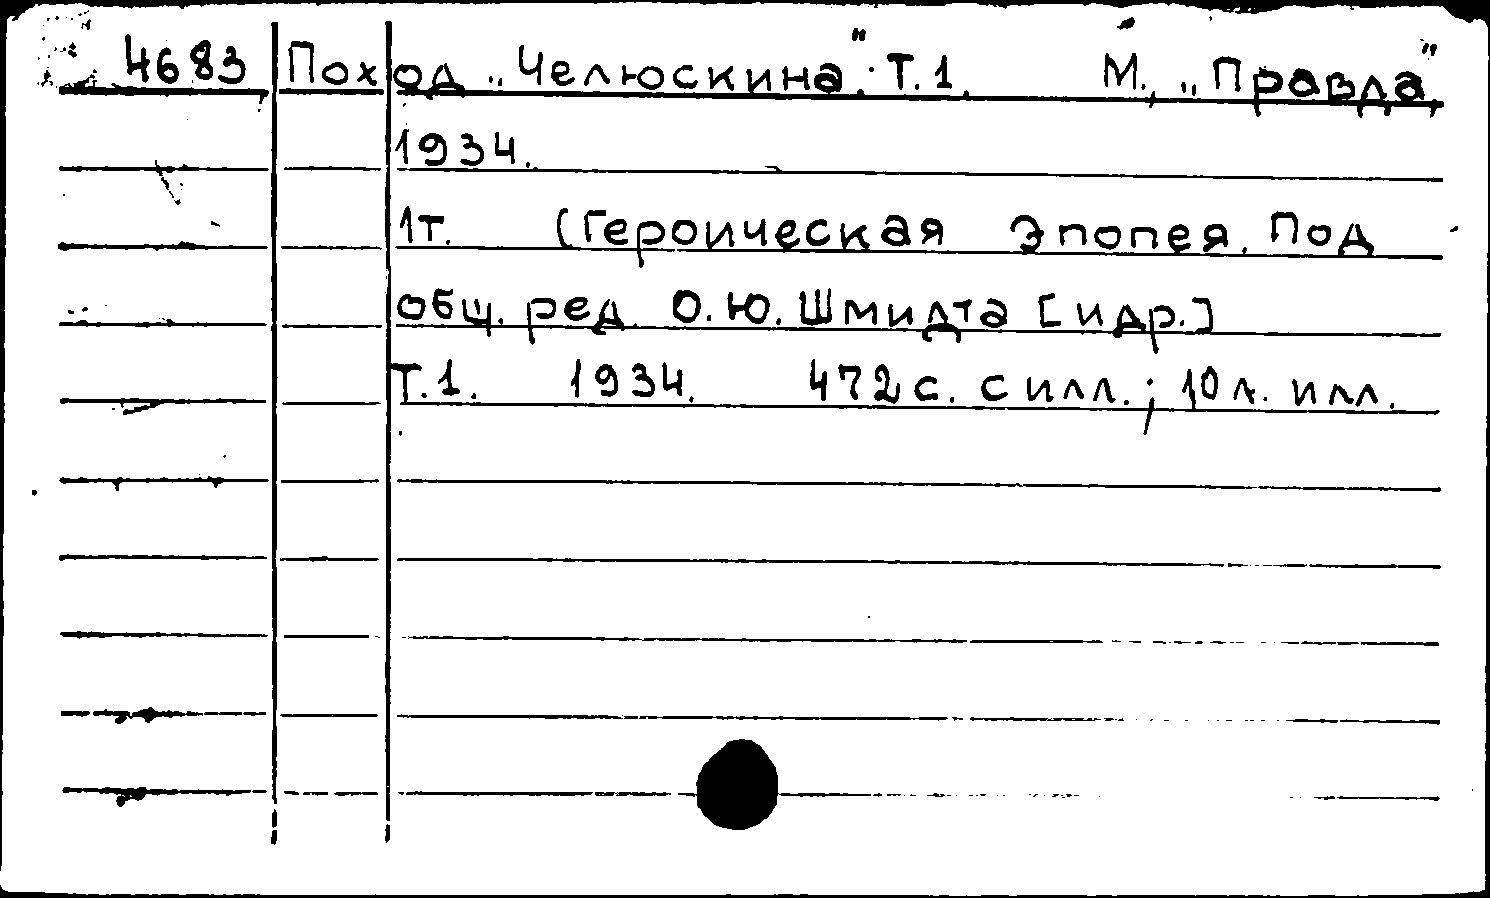 4683 Поход „Челюскина". Т.1. М., „Правда",
1934.
1т. (Героическая эпопея. Под
общ. ред. О.Ю. Шмидта [и др.]
Т.1. 1934. 472 с. с илл.; 10 л. илл.